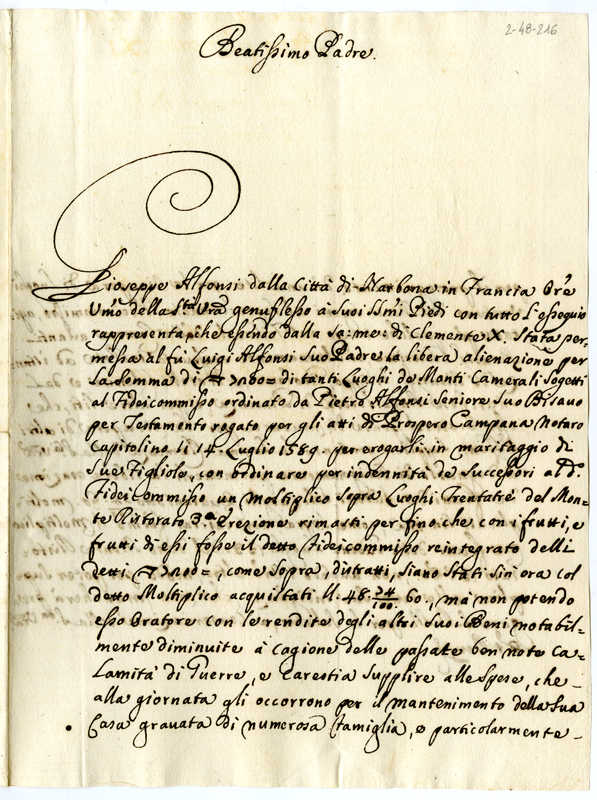 2-48-216
Beatissimo Padre.
Gioseppe Alfonsi dalla Città di Narbona in Francia Ore
Umo della Stà Vrã genuflesso à Suoi SSmi Piedi con tutto L'ossequio
rappresenta, che essendo dalla Sa: me: di Clemente X. Stata per=
messa al fù Luigi Alfonsi Suo Padre la libera alienazione per
La Somma di di tanti Luoghi de Monti Camerali Sogetti
al Fideicommisso ordinato da Pietro Alfonsi Seniore Suo Bisavo
per Testamento rogato per gli atti di Prospero Campana Notaro
Capitolino li 14. Luglio 1589. per erogarsi in maritaggio di
Sue Figliole, con ordinare per indennità de Successori al do.
Fideicommisso un moltiplico Sopra Luoghi Trentatrè del Mon=
te Ristorato 3a. Erezione rimasti per fino che con i frutti, e
frutti di essi fosse il detto Fideicommisso reintegrato delli
detti come Sopra, distratti, Siano Stati Sin' ora col
detto Moltiplico acquistati ll. 48. 74/100 60., mà non potendo
esso Oratore con le rendite degli altri Suoi Beni notabil=
mente diminuite à cagione delle passate ben note Ca=
Lamità di Guerre, e Carestia Supplire alle Spese, che
alla giornata gli occorrono per il mantenimento della Sua
Casa gravata di numerosa famiglia, e particolarmente